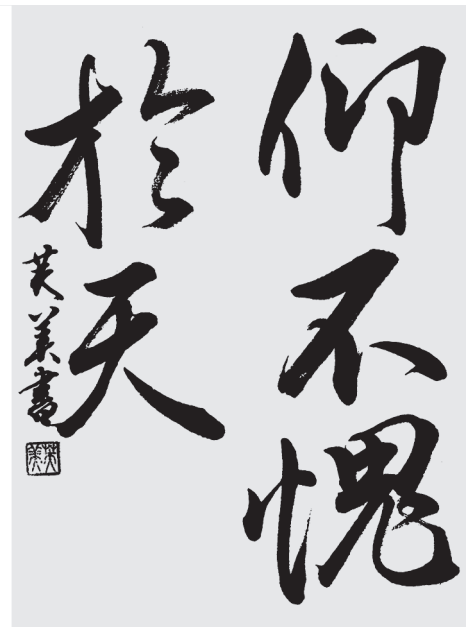 仰不愧
於天
英美書